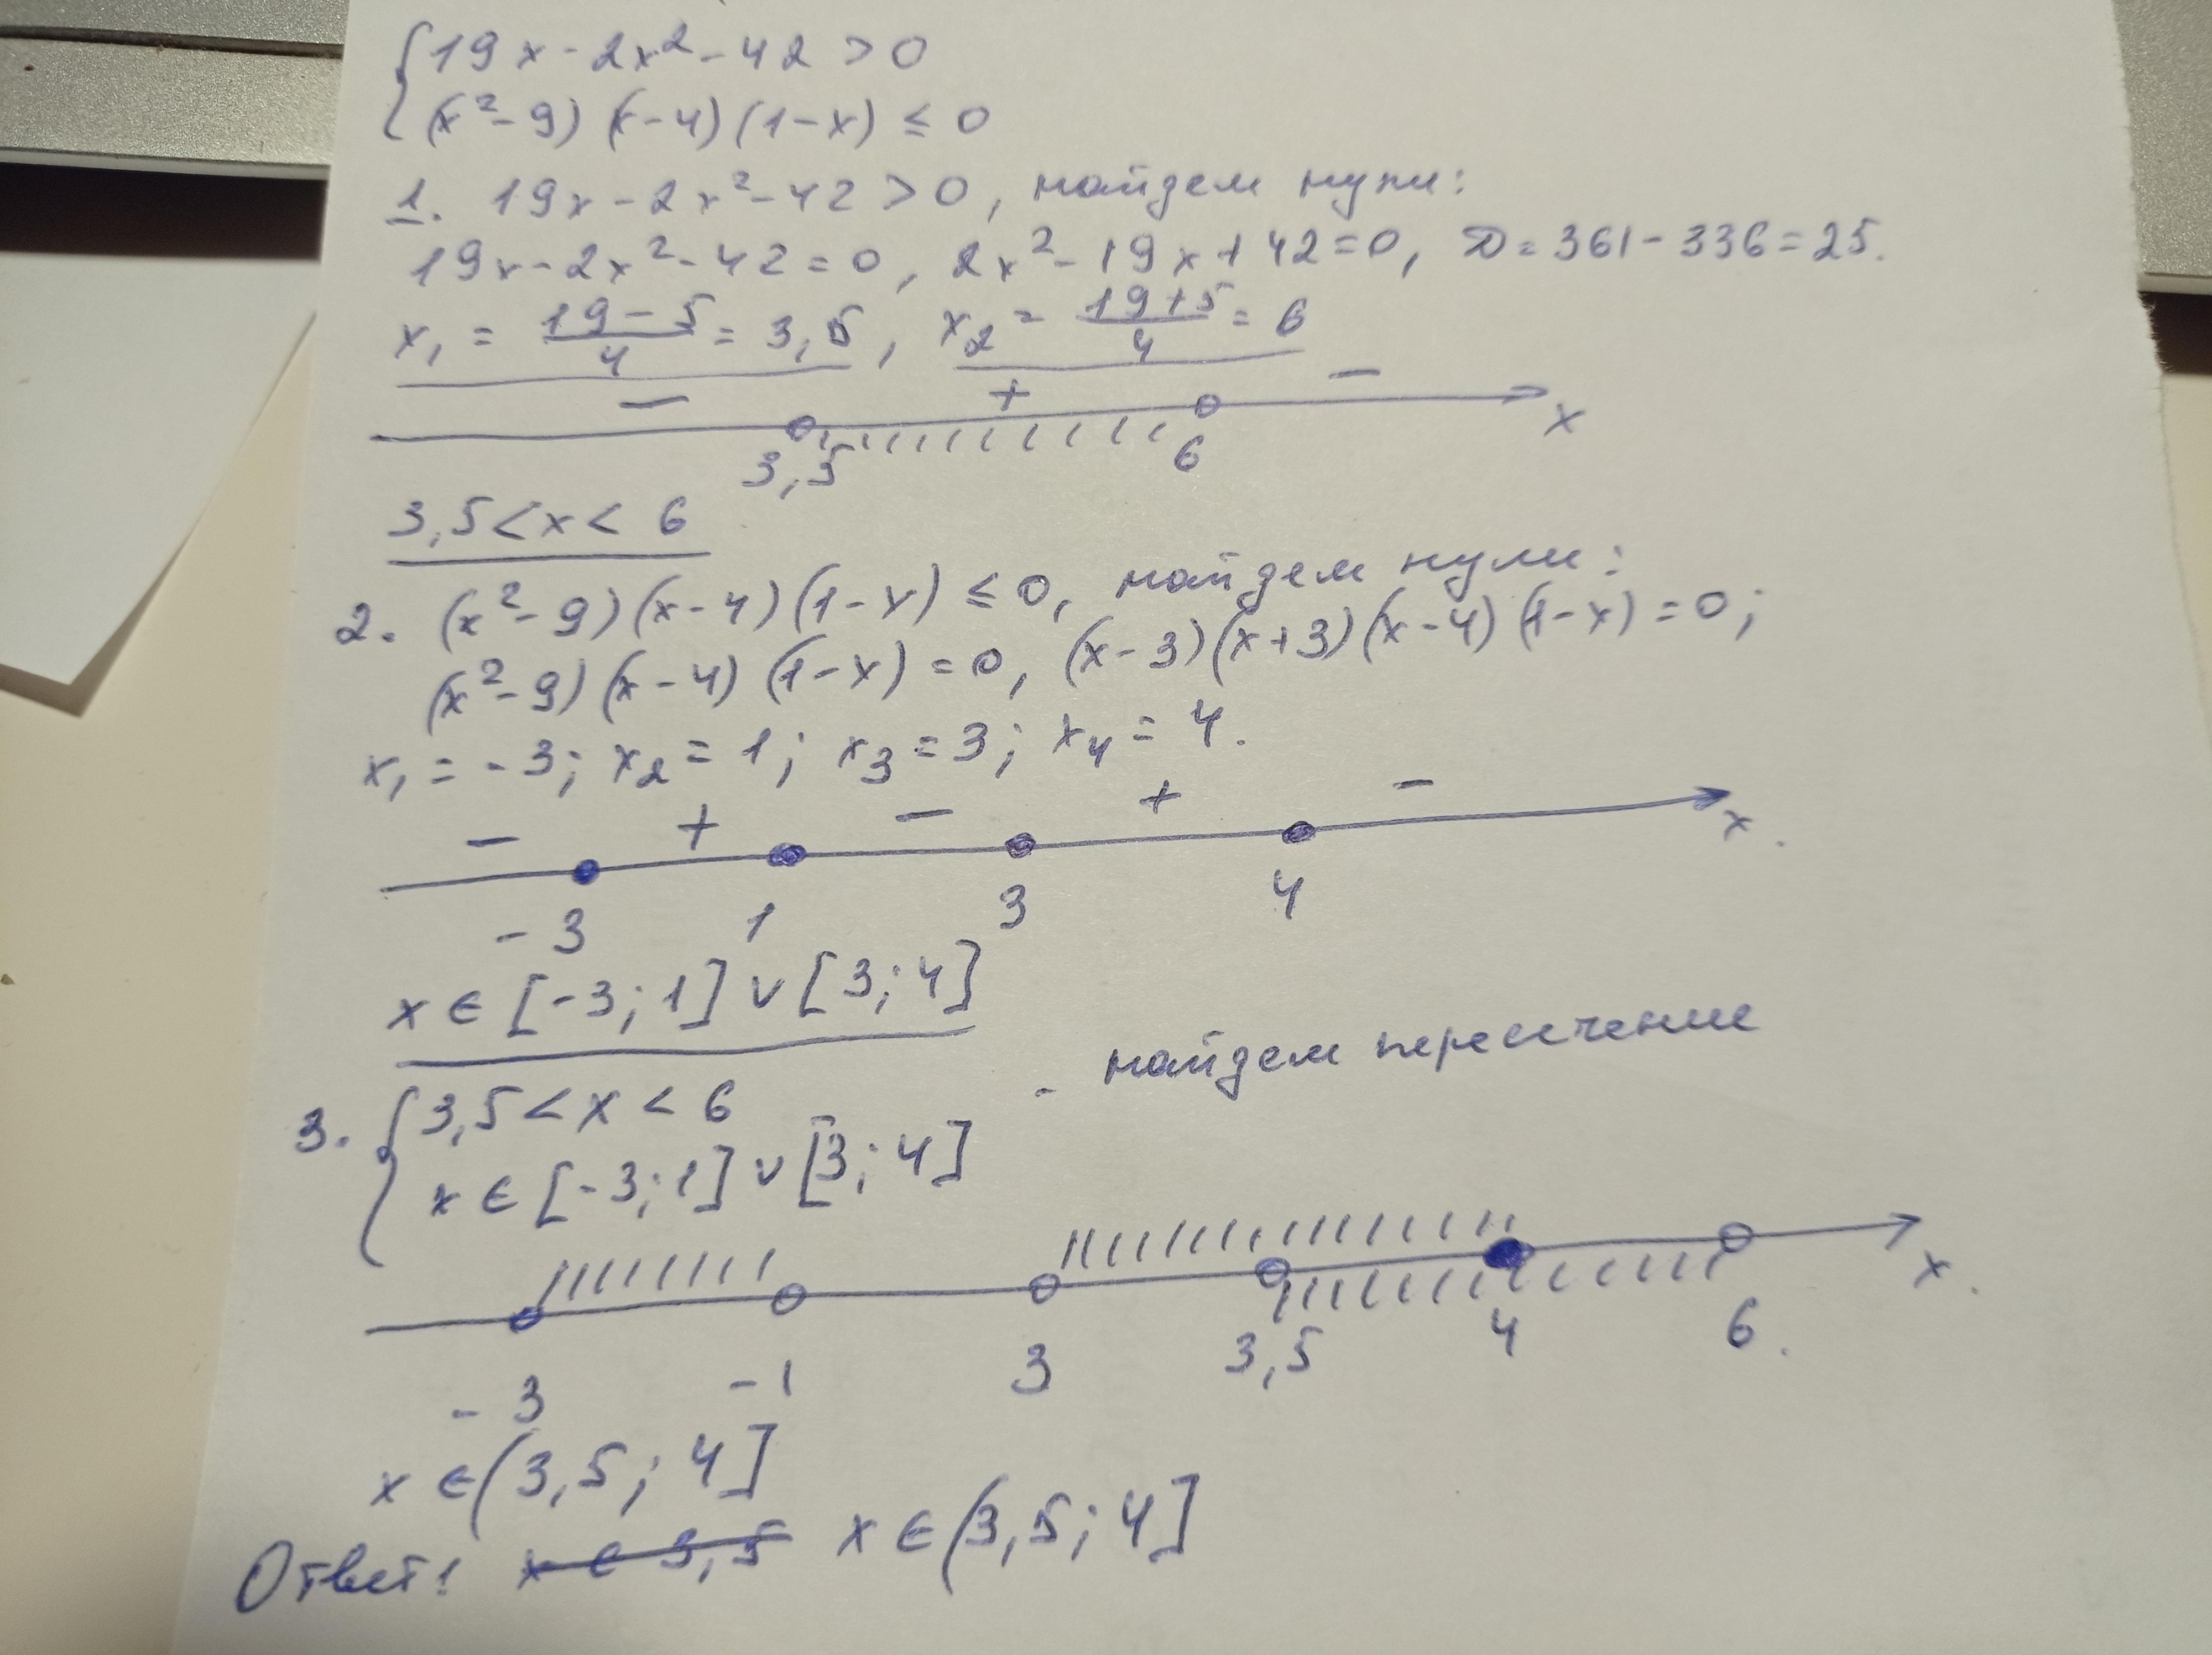 { 19x - 2x² - 42 > 0
(x² - 9)(x - 4)(1 - x) ≤ 0
1. 19x - 2x² - 42 > 0, найдем нули:
19x - 2x² - 42 = 0, 2x² - 19x + 42 = 0, D = 361 - 336 = 25.
x₁ = (19 - 5)/4 = 3,5, x₂ = (19 + 5)/4 = 6
− + − x
3,5 6
3,5 < x < 6
2. (x² - 9)(x - 4)(1 - x) ≤ 0, найдем нули:
(x² - 9)(x - 4)(1 - x) = 0, (x - 3)(x + 3)(x - 4)(1 - x) = 0;
x₁ = -3; x₂ = 1; x₃ = 3; x₄ = 4.
− + − + − x.
-3 1 3 4
x ∈ [-3; 1] ∨ [3; 4]
3. { 3,5 < x < 6 - найдем пересечение
x ∈ [-3; 1] ∨ [3; 4]
x.
-3 -1 3 3,5 4 6.
x ∈ (3,5; 4]
Ответ: x ∈ 3,5 x ∈ (3,5; 4]